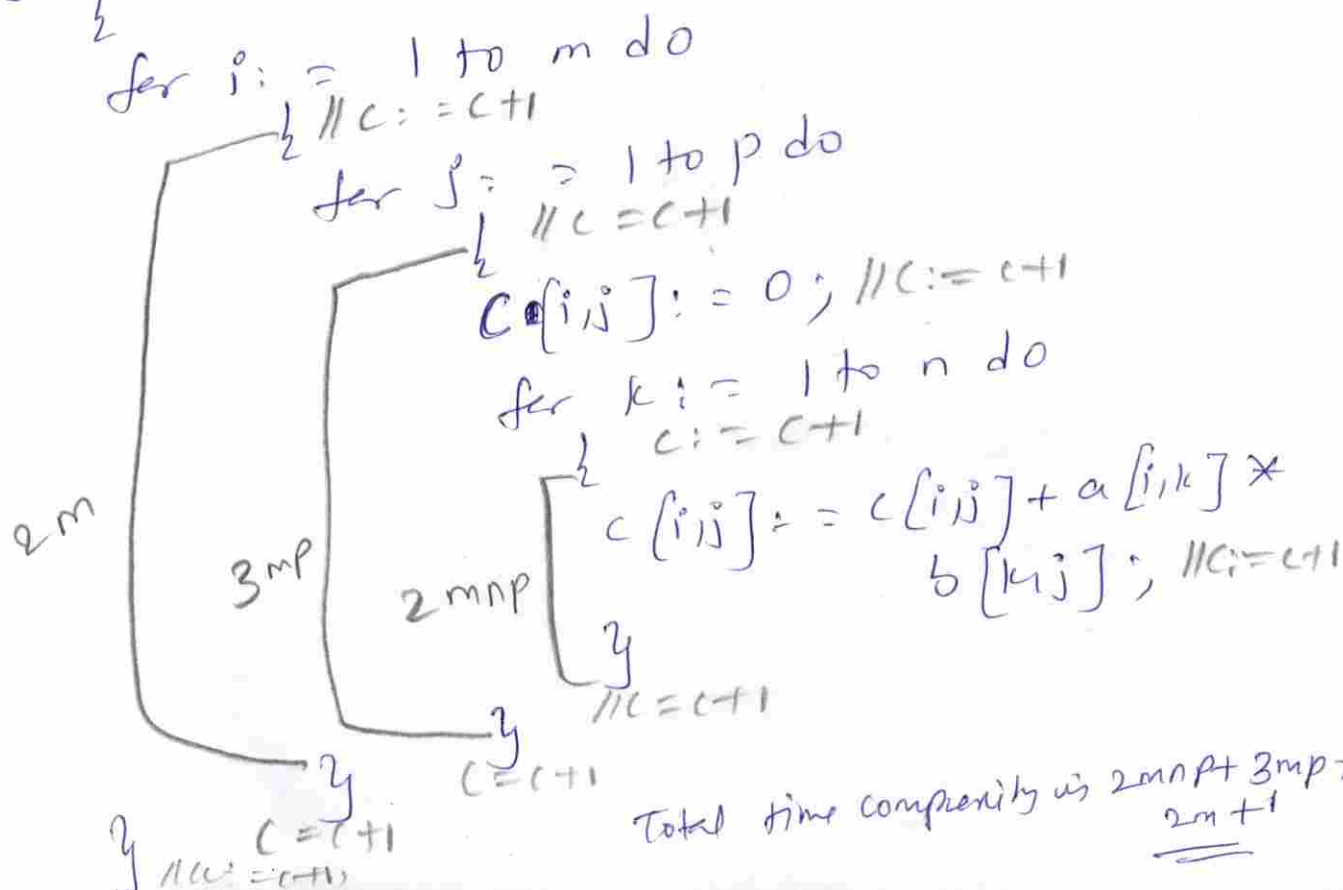 {
for i: = 1 to m do
{ //c: = c+1
for j: = 1 to p do
{ //c = c+1
C[i,j]: = 0; //c:= c+1
for k: = 1 to n do
{ c: = c+1
c[i,j]: = c[i,j] + a[i,k] *
b[k,j]; //c:= c+1
2m
3mp
2mnp
}
//c = c+1
}
c = c+1
}
c = c+1
}
Total time complexity is 2mnp + 3mp +
2m + 1